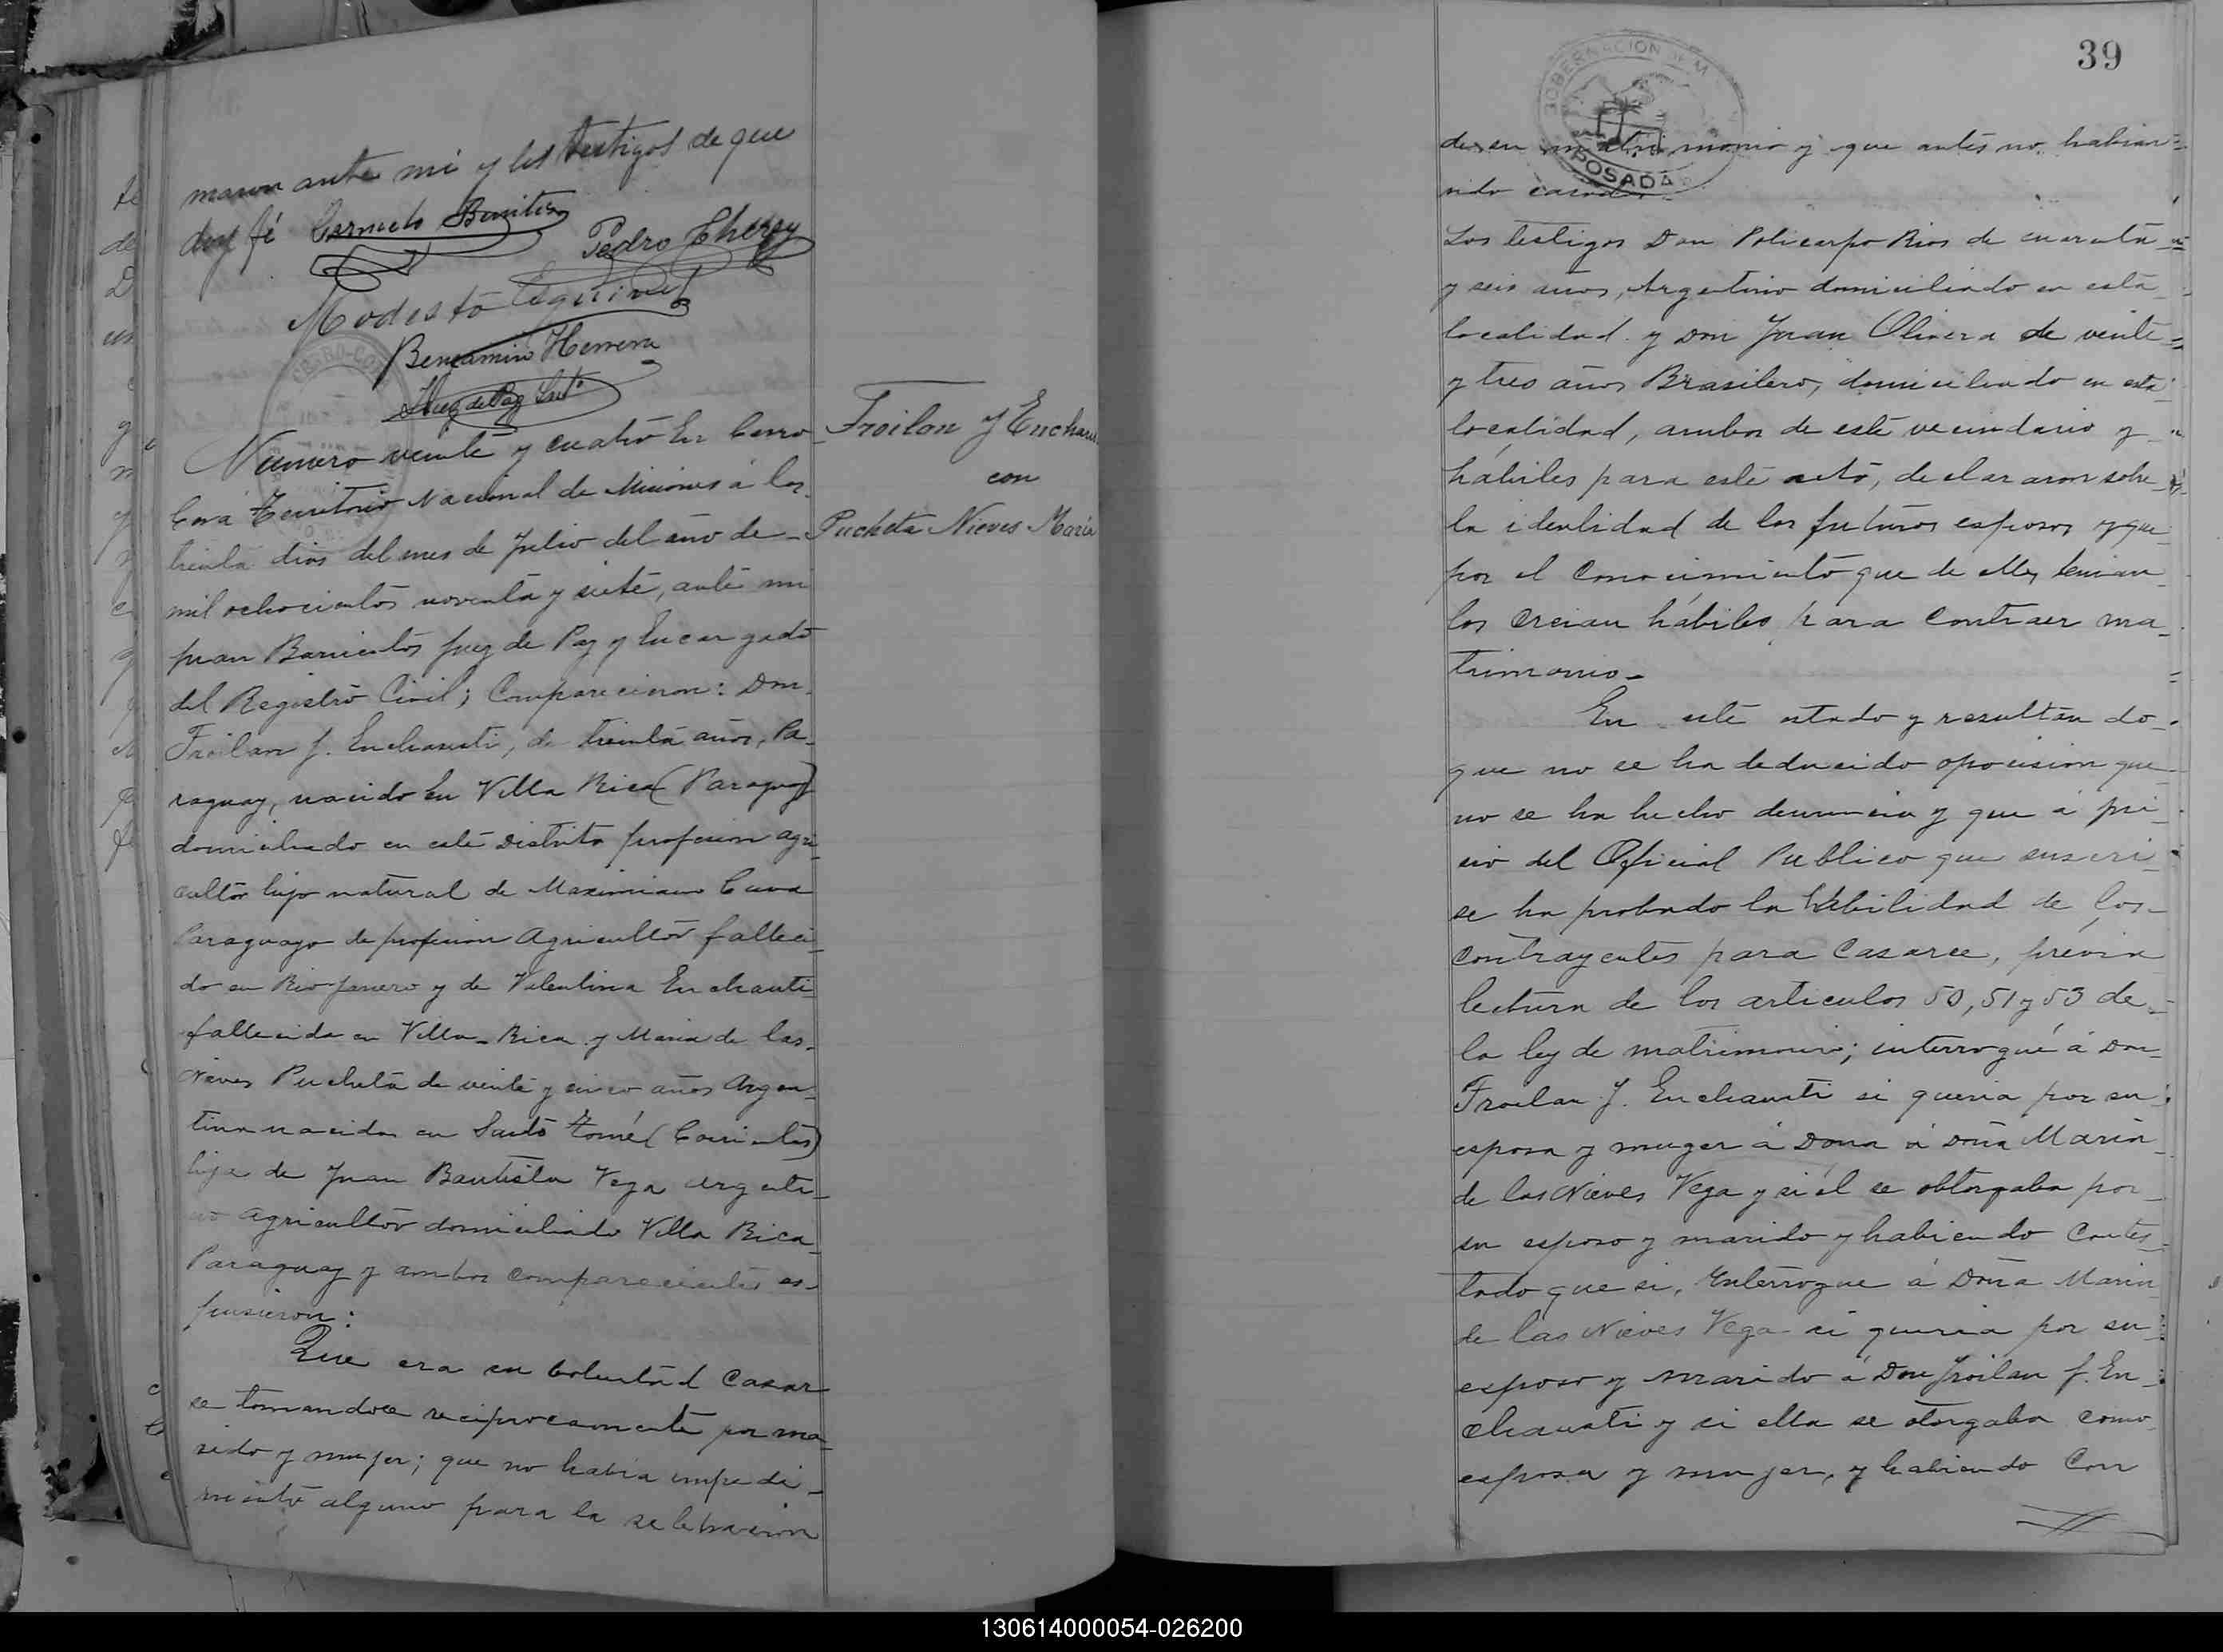 maron ante mi y los testigos de que
doy fé Carmelo Benitez
Pedro Cherey
Modesto
Benjamin Herrera
Juez de Paz Sust°
Froilan J Enchausti
con
Pucheta Nieves Maria
Numero veinte y cuatro En Cerro
Corá Territorio Nacional de Misiones á los
treinta dias del mes de Julio del año de
mil ochocientos noventa y siete, ante mi
Juan Barrientos Juez de Paz y Encargado
del Registro Civil; Comparecieron: Don
Froilan J. Enchausti, de treinta años, Pa_
raguay, nacido en Villa Rica (Paraguay)
domiciliado en este Distrito profesion agri_
cultor hijo natural de Maximiano Cuva
Paraguayo de profesion Agricultor falleci_
do en Rio Janero y de Valentina Enchauti
fallecida en Villa_Rica y Maria de las
Nieves Pucheta de veinte y cinco años Argen_
tina nacida en Santo Tomé (Corrientes)
hija de Juan Bautista Vega Argenti_
no agricultor domiciliado Villa Rica_
Paraguay y ambos comparecientes es_
pusieron:
Que era su boluntad casar
se tomandose reciprocamente por ma_
rido y mujer; que no habia impedi_
miento alguno para la selebracion
39
GOBERNACION DE M
POSADAS
de su matrimonio y que antes no habian
sido casados_
Los testigos Don Policarpo Rios de cuarenta
y seis años, Argentino domiciliado en esta
localidad y Don Juan Olivera de veinte
y tres años Brasilero, domiciliado en esta
localidad, ambos de este vecindario y
hábiles para este acto, declararon sobre
la identidad de los futuros esposos y que
por el conocimiento que de ellos tenian
los creian hábiles para contraer ma_
trimonio_
En este estado y resultando
que no se ha deducido oposision que
no se ha hecho denuncia y que á jui
cio del Oficial Publico que suscri
se ha probado la habilidad de los_
contrayentes para casarce, prévia
lectura de los articulos 50, 51 y 53 de
la ley de matrimonio; interrogué á Don
Froilan J. Enchausti si queria por su
esposa y muger á Dona á Doña Maria
de las Nieves Vega y si él se obtorgaba por
su esposo y marido y habiendo contes
tado que si, Interrogue á Doña Maria
de las Nieves Vega si queria por su
esposo y marido á Don Froilan J. En_
chausti y si ella se otorgaba como
esposa y mujer, y habiendo Con
130614000054-026200